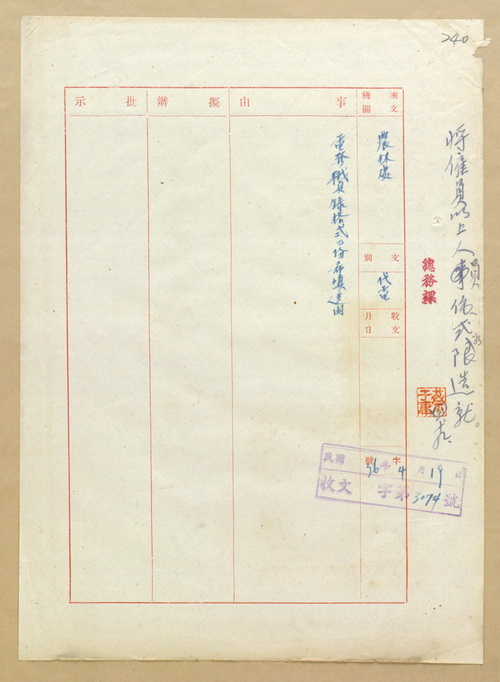 240
將僱員以上人員依式限造就。
總務課
來文機關
農林處
文別
代電
收文
月日
字號
事由
電發職員錄格式乙份希填送由
擬辦
批示
民國36年4月19日
收文 字第3074號